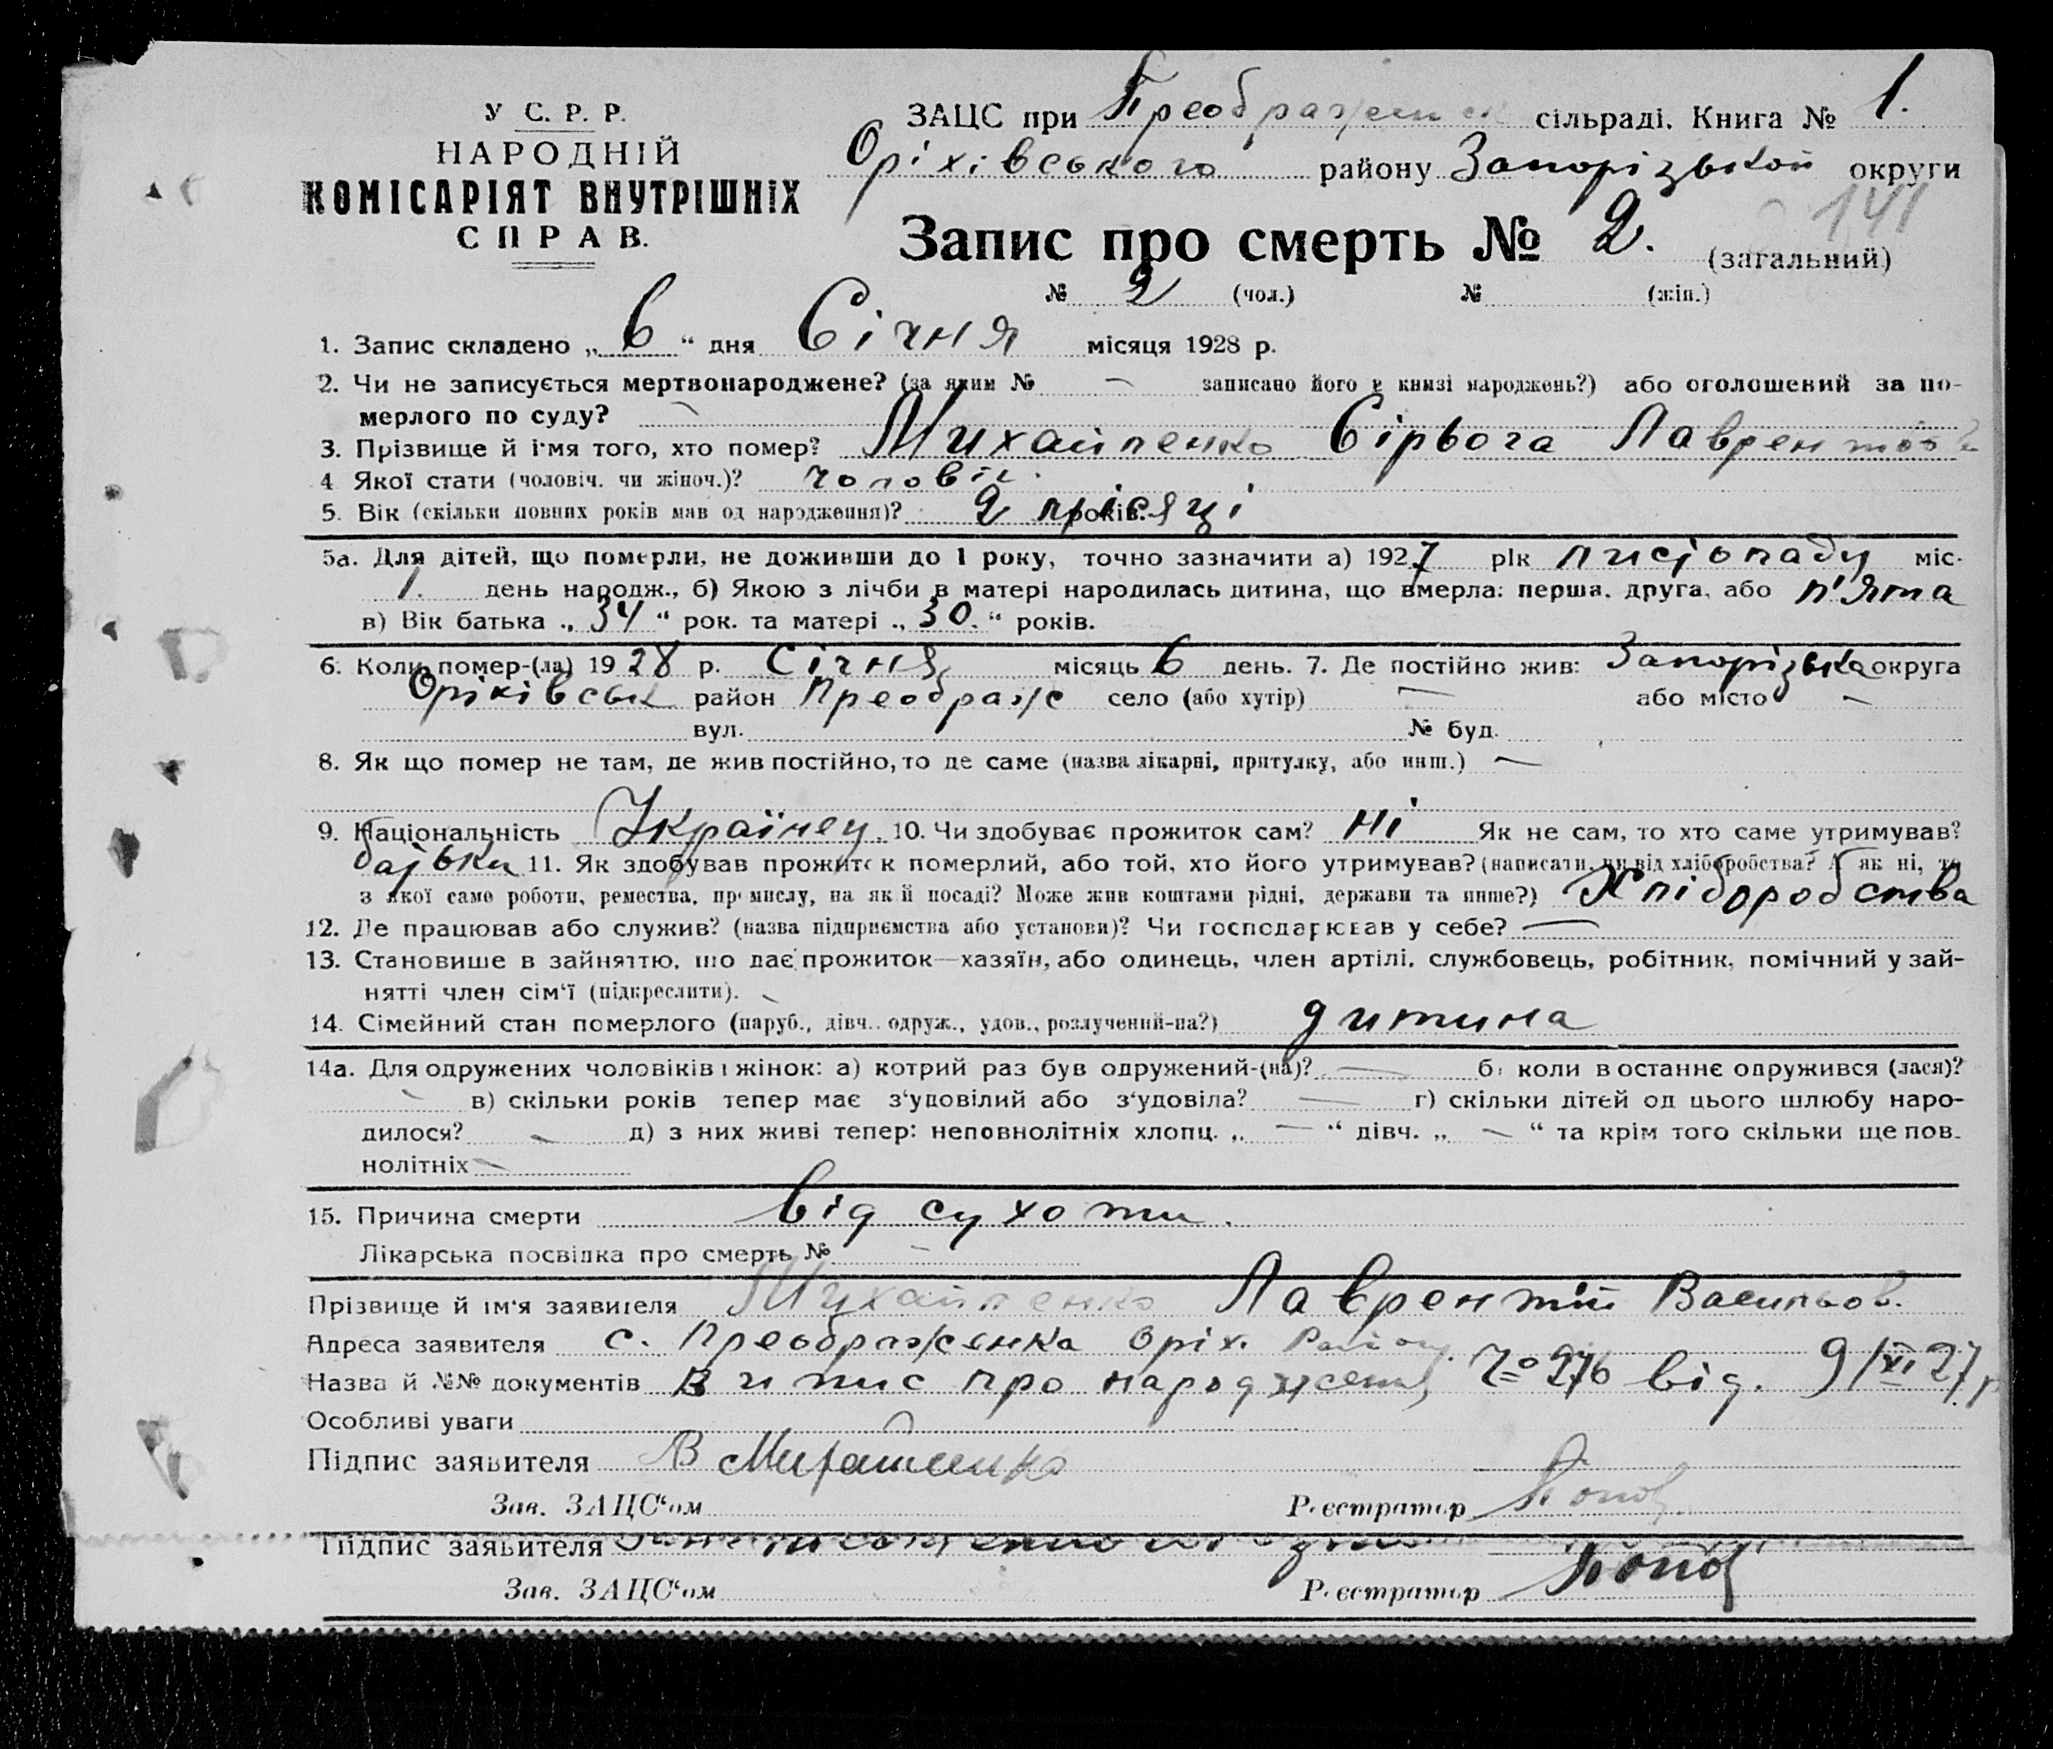 У С. Р. Р.
НАРОДНІЙ
КОМІСАРІЯТ ВНУТРІШНІХ
СПРАВ.
ЗАЦС при Преображенск сільраді. Книга № 1.
Оріхівського району Запорізької округи
141
Запис про смерть № 2. (загальний)
№ 2 (чол.) № (жін.)
1. Запис складено „ 6 “ дня Січня місяця 1928 р.
2. Чи не записується мертвонароджене? (за яким № — записано його в книзі народжень?) або оголошений за по-
мерлого по суду? —
3. Прізвище й ім'я того, хто помер? Михайленко Сірьога Лаврентов
4 Якої стати (чоловіч. чи жіноч.)? чоловік.
5. Вік (скільки повних років мав од народження)? 2 місяці років.
5а. Для дітей, що померли, не доживши до 1 року, точно зазначити а) 1927 рік листопаду міс.
1. день народж., б) Якою з лічби в матері народилась дитина, що вмерла: перша, друга, або п'ята
в) Вік батька „ 34 “ рок. та матері „ 30. “ років.
6. Коли помер-(ла) 1928 р. Січня місяць 6 день. 7. Де постійно жив: Запорізька округа
Оріхівськ район Преображ село (або хутір) — або місто —
вул. № буд.
8. Як що помер не там, де жив постійно, то де саме (назва лікарні, притулку, або инш.) —
9. Національність Українец. 10. Чи здобуває прожиток сам? Ні Як не сам, то хто саме утримував?
батьки 11. Як здобував прожиток померлий, або той, хто його утримував? (написати, чи від хліборобства? А як ні, то
з якої само роботи, ремества, промислу, на якій посаді? Може жив коштами рідні, держави та инше?) Хліборобства
12. Де працював або служив? (назва підприємства або установи)? Чи господарював у себе? —
13. Становище в зайняттю, що дає прожиток—хазяїн, або одинець, член артілі, службовець, робітник, помічний у зай-
нятті член сім‘ї (підкреслити). —
14. Сімейний стан померлого (паруб., дівч., одруж., удов., розлучений-на?) дитина
14а. Для одружених чоловіків і жінок: а) котрий раз був одружений-(на)? — б) коли в останнє одружився (лася)?
— в) скільки років тепер має з‘удовілий або з‘удовіла? — г) скільки дітей од цього шлюбу наро-
дилося? — д) з них живі тепер: неповнолітніх хлопц. „ — “ дівч. „ — “ та крім того скільки ще пов-
нолітніх —
15. Причина смерти від сухоти.
Лікарська посвідка про смерть № —
Прізвище й ім'я заявителя Михайленко Лаврентий Васильов.
Адреса заявителя с. Преображенка Оріх. Району.
Назва й №№ документів Випис про народження № 276 від. 9/XI 27 р
Особливі уваги
Підпис заявителя В Михайленко
Зав. ЗАЦС‘ом Реєстратор Попов
Підпис заявителя
Зав. ЗАЦС‘ом Реєстратор Попов